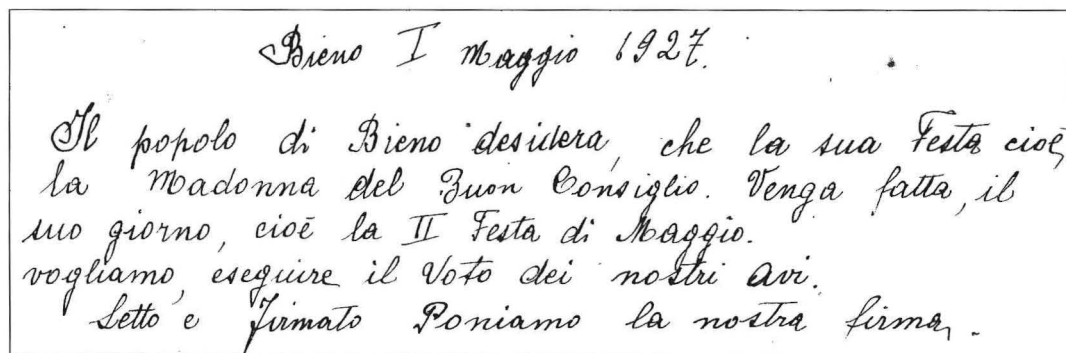 Bieno I Maggio 1927.
Il popolo di Bieno desidera, che la sua Festa cioè,
la Madonna del Buon Consiglio. Venga fatta, il
suo giorno, cioè la II Festa di Maggio.
vogliamo, eseguire il Voto dei nostri avi.
Letto e firmato Poniamo la nostra firma.